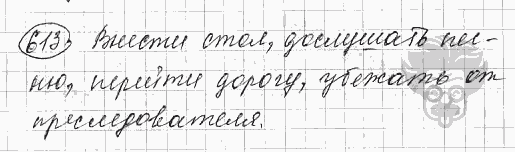 613. Внести стол, дослушать пес-
ню, перейти дорогу, убежать от
преследователя.